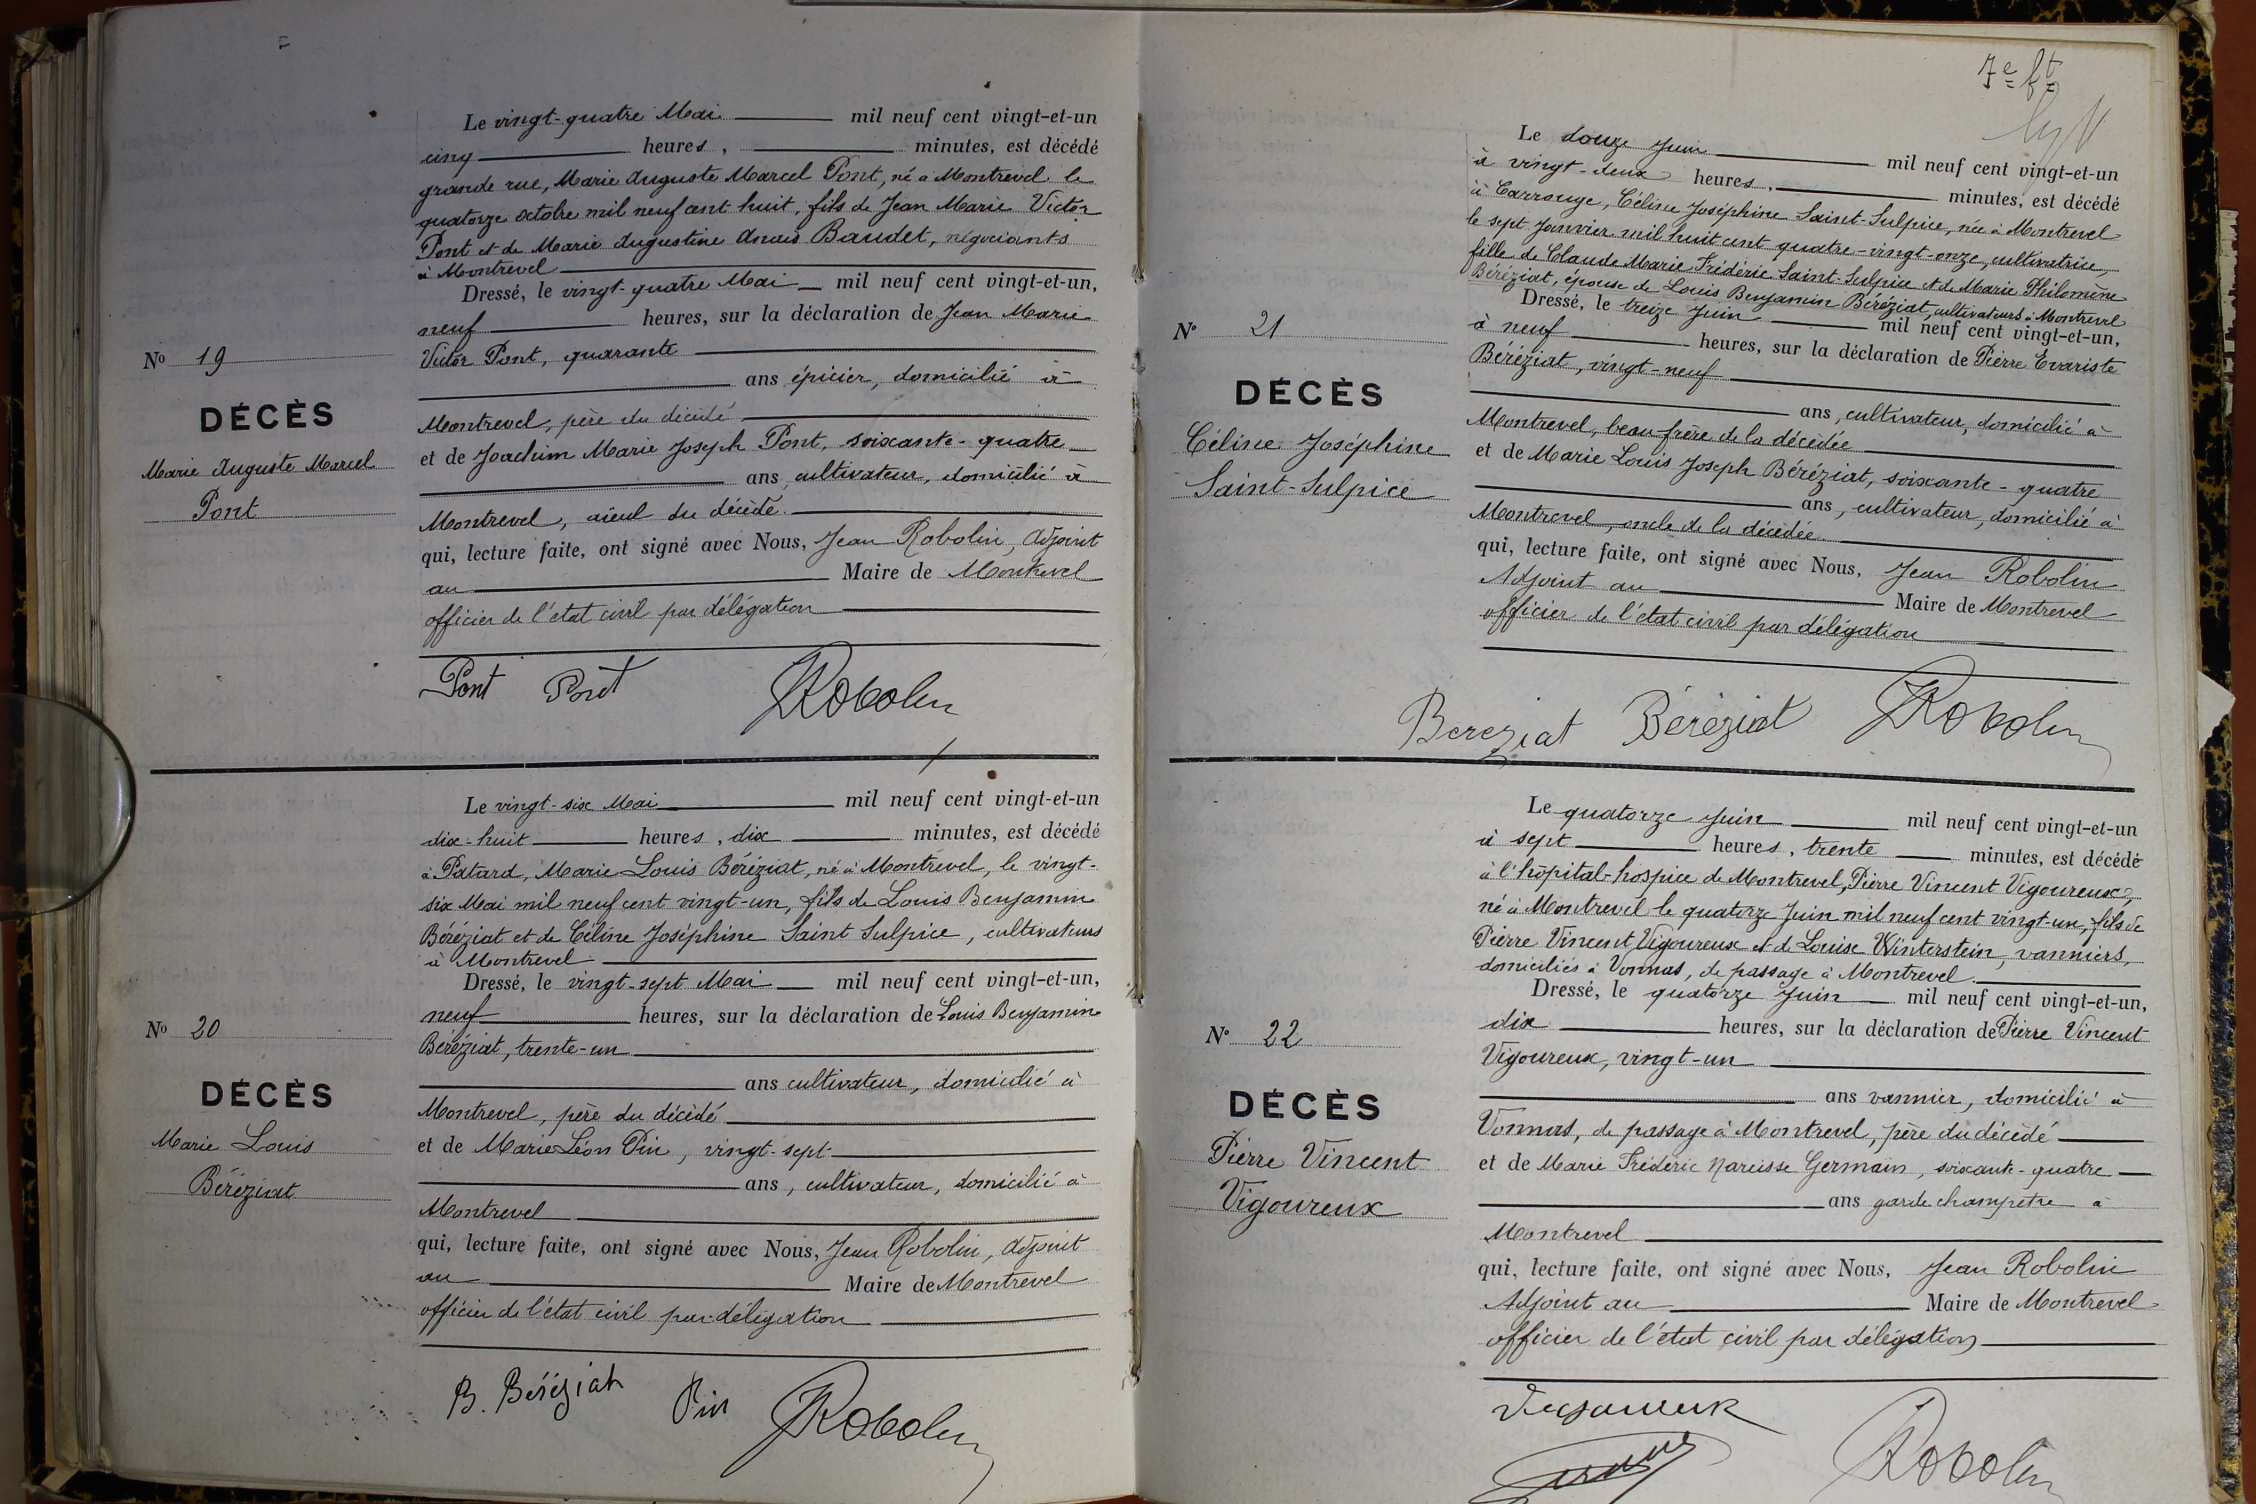 Le vingt-quatre Mai mil neuf cent vingt-et-un
cinq heures, minutes, est décédé
grande rue, Marie Auguste Marcel Pont, né à Montrevel le
quatorze octobre mil neuf cent huit, fils de Jean Marie Victor
Pont et de Marie Augustine Anaïs Baudet, négociants
à Montrevel
Dressé, le vingt-quatre Mai mil neuf cent vingt-et-un,
neuf heures, sur la déclaration de Jean Marie
Victor Pont, quarante
ans épicier, domicilié à
Montrevel, père du décédé
et de Joachim Marie Joseph Pont, soixante-quatre
ans, cultivateur, domicilié à
Montrevel, aïeul du décédé
qui, lecture faite, ont signé avec Nous, Jean Robolin, Adjoint
au Maire de Montrevel
officier de l'état civil par délégation
No 19
DÉCÈS
Marie Auguste Marcel
Pont
Pont Pont Robolin
Le vingt-six Mai mil neuf cent vingt-et-un
dix-huit heures, dix minutes, est décédé
à Patard, Marie Louis Béréziat, né à Montrevel, le vingt-
six Mai mil neuf cent vingt-un, fils de Louis Benjamin
Béréziat et de Céline Joséphine Saint Sulpice, cultivateurs
à Montrevel
Dressé, le vingt-sept Mai mil neuf cent vingt-et-un,
neuf heures, sur la déclaration de Louis Benjamin
Béréziat, trente-un
ans cultivateur, domicilié à
Montrevel, père du décédé
et de Marie Léon Pin, vingt-sept
ans, cultivateur, domicilié à
Montrevel
qui, lecture faite, ont signé avec Nous, Jean Robolin, Adjoint
au Maire de Montrevel
officier de l'état civil par délégation
No 20
DÉCÈS
Marie Louis
Béréziat
B. Béréziat Pin Robolin
7e ft
Le douze Juin mil neuf cent vingt-et-un
à vingt-deux heures, minutes, est décédé
à Carrouge, Céline Joséphine Saint-Sulpice, née à Montrevel
le sept Janvier mil huit cent quatre-vingt-onze, cultivatrice,
fille de Claude Marie Frédéric Saint-Sulpice et de Marie Philomène
Béréziat, épouse de Louis Benjamin Béréziat, cultivateurs à Montrevel
Dressé, le treize Juin mil neuf cent vingt-et-un,
à neuf heures, sur la déclaration de Pierre Evariste
Béréziat, vingt-neuf
ans, cultivateur, domicilié à
Montrevel, beau-frère de la décédée
et de Marie Louis Joseph Béréziat, soixante-quatre
ans, cultivateur, domicilié à
Montrevel, oncle de la décédée
qui, lecture faite, ont signé avec Nous, Jean Robolin
Adjoint au Maire de Montrevel
officier de l'état civil par délégation
No 21
DÉCÈS
Céline Joséphine
Saint-Sulpice
Bereziat Béréziat Robolin
Le quatorze Juin mil neuf cent vingt-et-un
à sept heures, trente minutes, est décédé
à l'hôpital-hospice de Montrevel, Pierre Vincent Vigoureux,
né à Montrevel le quatorze Juin mil neuf cent vingt-un, fils de
Pierre Vincent Vigoureux et de Louise Winterstein, vanniers,
domiciliés à Vonnas, de passage à Montrevel
Dressé, le quatorze Juin mil neuf cent vingt-et-un,
dix heures, sur la déclaration de Pierre Vincent
Vigoureux, vingt-un
ans vannier, domicilié à
Vonnas, de passage à Montrevel, père du décédé
et de Marie Frédéric Narcisse Germain, soixante-quatre
ans garde champêtre à
Montrevel
qui, lecture faite, ont signé avec Nous, Jean Robolin
Adjoint au Maire de Montrevel
officier de l'état civil par délégation
No 22
DÉCÈS
Pierre Vincent
Vigoureux
Robolin